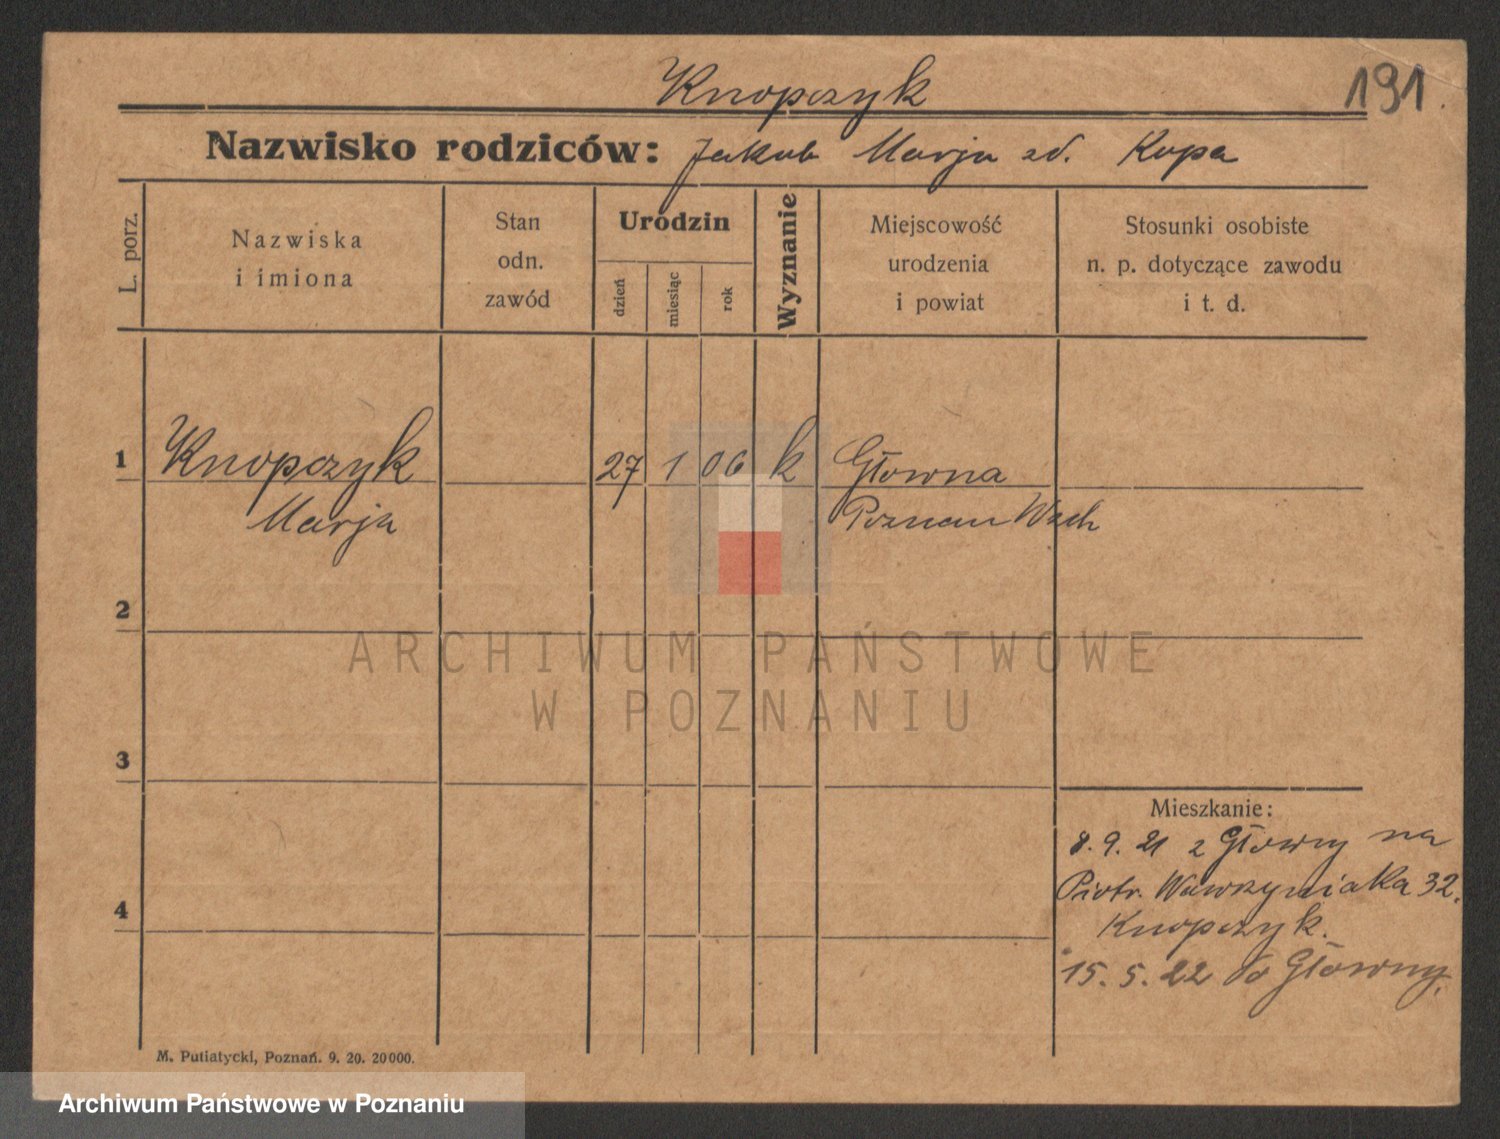 Knopczyk
191.
Nazwisko rodziców: Jakub Marja zd. Kopa
L. porz.
Nazwiska
i imiona
Stan
odn.
zawód
Urodzin
dzień
miesiąc
rok
Wyznanie
Miejscowość
urodzenia
i powiat
Stosunki osobiste
n. p. dotyczące zawodu
i t. d.
1 Knopczyk 27 1 06 k Głowna
Marja Poznan Wsch
2
ARCHIWUM PAŃSTWOWE
W POZNANIU
3
Mieszkanie:
8. 9. 21 z Głowny na
Piotr. Wawrzyniaka 32.
4
Knopczyk.
15. 5. 22 do Głowny.
M. Putiatycki, Poznań. 9. 20. 20000.
Archiwum Państwowe w Poznaniu